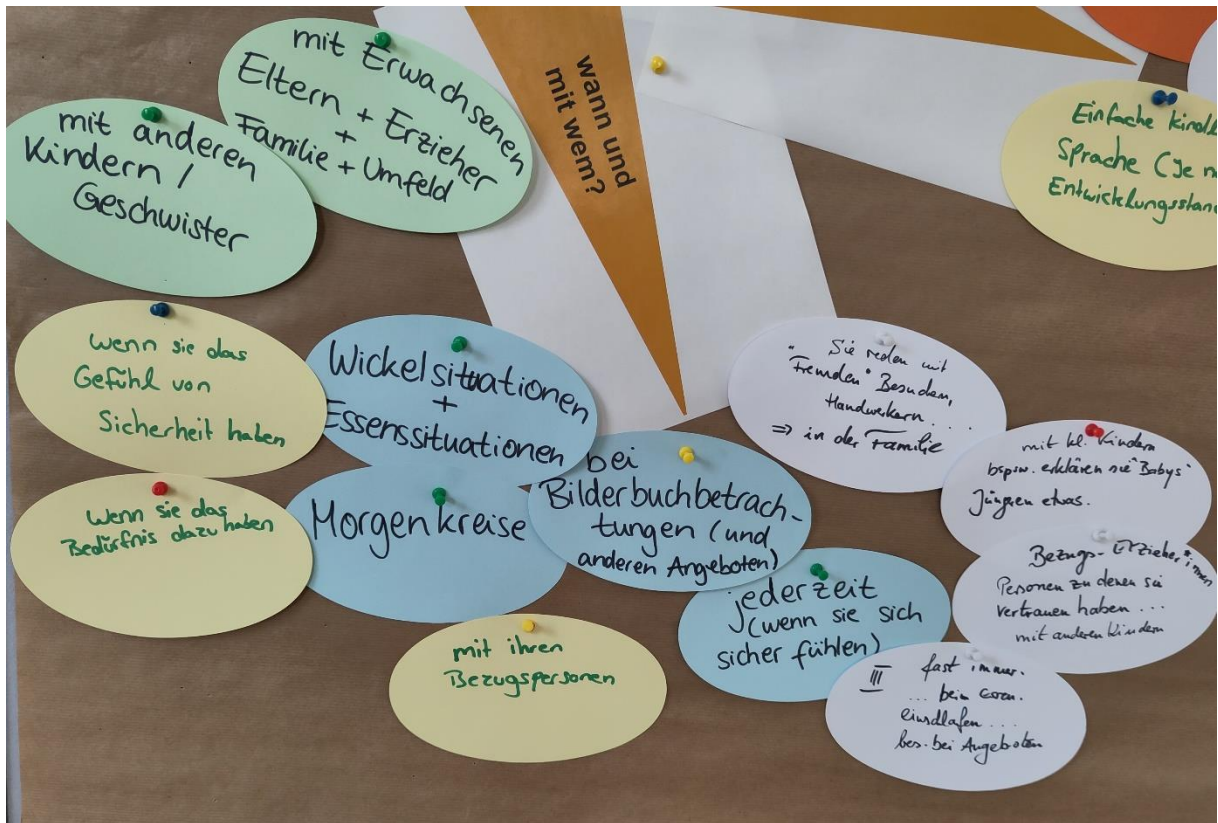 mit Erwachsenen
Eltern + Erzieher
+
Familie + Umfeld
mit anderen
Kindern /
Geschwister
wann und
mit wem?
Einfache kindl
Sprache (Je n
Entwicklungsstan
wenn sie das
Gefühl von
Sicherheit haben
Wickelsituationen
+
Essenssituationen
Sie reden mit
"Fremden" Besuchern,
Handwerkern ....
⇒ in der Familie
mit kl. Kindern
bspw. erklären sie "Babys"
Jüngren etwas.
wenn sie das
Bedürfnis dazu haben
Morgenkreise
bei
Bilderbuchbetrach-
tungen (und
anderen Angeboten)
Bezugs-Erzieher*innen
Personen zu denen sie
vertrauen haben ...
mit anderen Kindern
jederzeit
(wenn sie sich
sicher fühlen)
mit ihren
Bezugspersonen
III fast immer.
... beim
einschlafen ...
bes. bei Angeboten